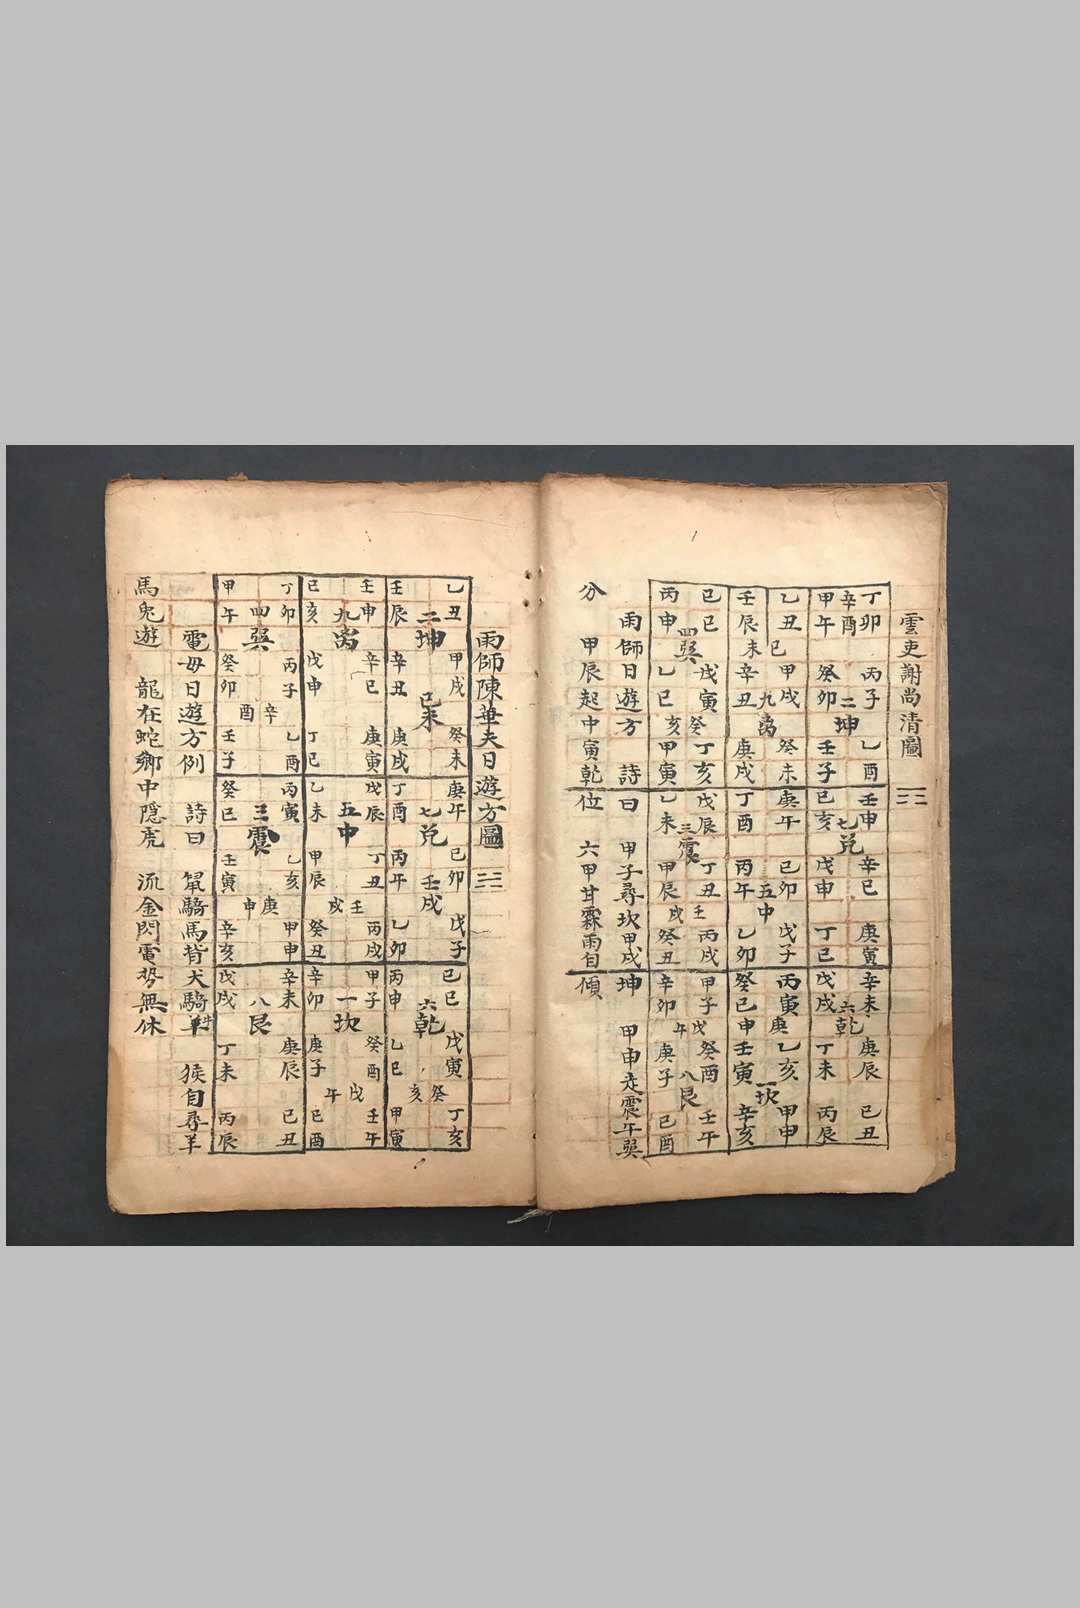 雲吏謝尚清圖
丁卯 丙子 乙酉
辛酉 二坤
甲午 癸卯 壬子
乙丑 甲戌 癸未
己未 九离
壬辰 辛丑 庚戌
己巳 戊寅 丁亥
四巽 癸亥
丙申 乙巳 甲寅
壬申 辛巳 庚寅
七兑
己亥 戊申 丁巳
庚午 己卯 戊子
五中
丁酉 丙午 乙卯
戊辰 丁丑 丙戌
三震 壬戌
乙未 甲辰 癸丑
辛未 庚辰 己丑
六乾
戊戌 丁未 丙辰
丙寅 乙亥 甲申
庚申 一坎
癸巳 壬寅 辛亥
甲子 癸酉 壬午
戊午 八艮
辛卯 庚子 己酉
雨師日遊方 詩曰 甲子尋坎甲戌坤 甲申走震午巽
分 甲辰起中寅乾位 六甲甘霖雨自傾
雨師陳華夫日遊方圖
乙丑 甲戌 癸未
二坤 己未
壬辰 辛丑 庚戌
壬申 辛巳 庚寅
九离
己亥 戊申 丁巳
丁卯 丙子 乙酉
四巽 辛酉
甲午 癸卯 壬子
庚午 己卯 戊子
七兑 壬戌
丁酉 丙午 乙卯
戊辰 丁丑 丙戌
五中 壬戌
乙未 甲辰 癸丑
丙寅 乙亥 甲申
三震 庚申
癸巳 壬寅 辛亥
己巳 戊寅 丁亥
六乾 癸亥
丙申 乙巳 甲寅
甲子 癸酉 壬午
一坎 戊午
辛卯 庚子 己酉
辛未 庚辰 己丑
八艮
戊戌 丁未 丙辰
電母日遊方例 詩曰 鼠騎馬背犬騎牛 猴自尋羊
馬兔遊 龍在蛇鄉中隱虎 流金閃電勢無休